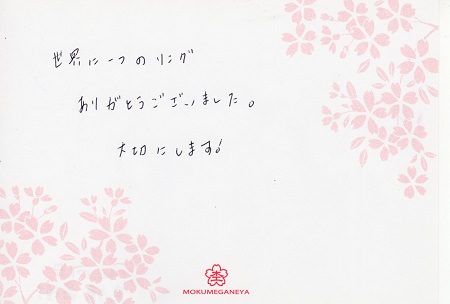 世界に一つのリング
ありがとうございました。
大切にします!
MOKUMEGANEYA